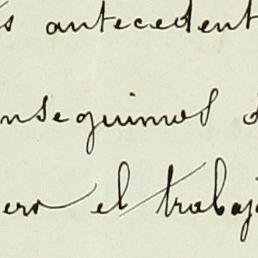 s antecedent
nseguimos
ero el trabaj